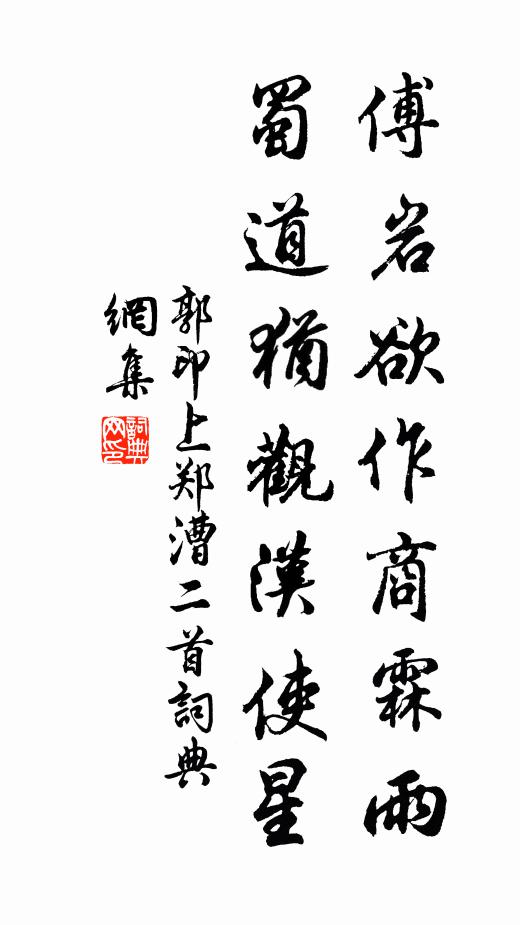 傅岩欲作商霖雨
蜀道猶觀漢使星
郭印上郑漕二首詞典
網集
詞典網印